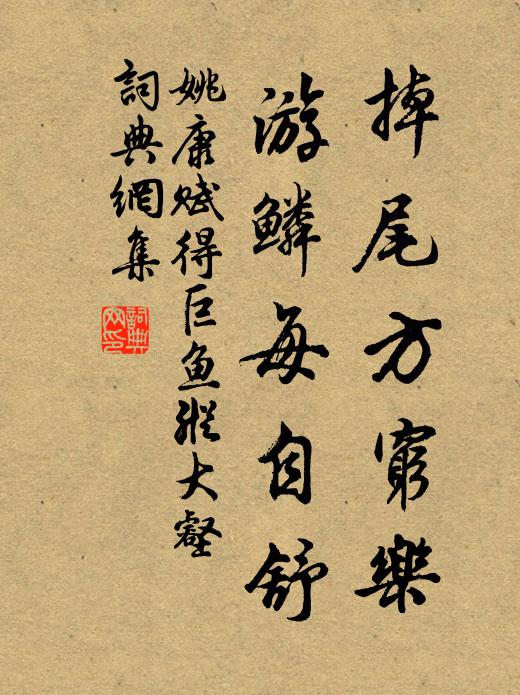 掉尾方窮樂
游鱗每自舒
姚康賦得巨魚縱大壑
詞典網集
詞典网印